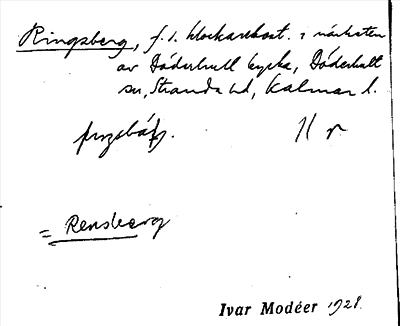 Ringsberg, f. d. klockarebost. i närheten
av Döderhult kyrka, Döderhult
sn, Stranda hd, Kalmar l.
= Rensberg
Ivar Modéer 1928.